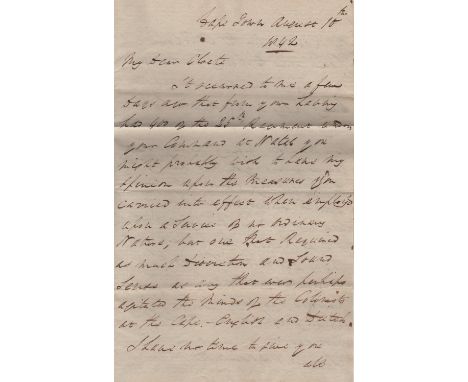 Cape Town August 10th
1842
My Dear Cloete
It occurred to me a few
Days ago that from your having
had 400 of the 25th Regiment under
your Command at Natal you
might probably wish to have my
opinion upon the Measures you
carried into effect when employed
upon a Service of no ordinary
Nature, but one that Required
as much Discretion and Sound
Sense as any that ever perhaps
agitated the Minds of the Colonists
at the Cape - English and Dutch.
I have no time to give you